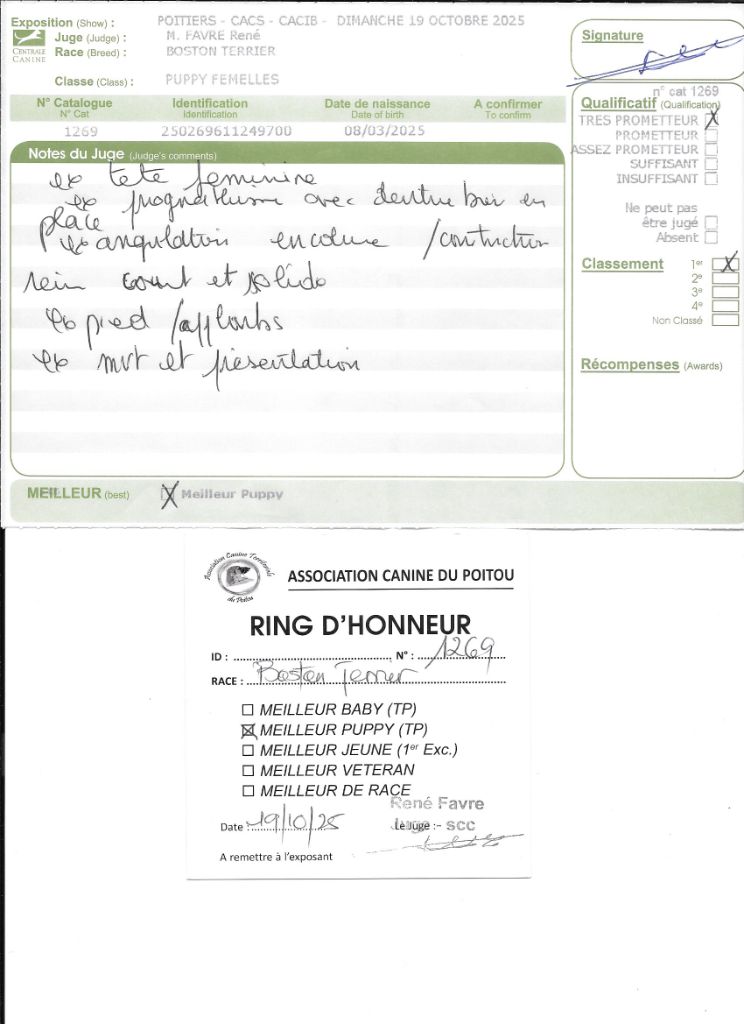 Exposition (Show) : POITIERS - CACS - CACIB - DIMANCHE 19 OCTOBRE 2025
CENTRALE CANINE
Juge (Judge) : M. FAVRE René
Race (Breed) : BOSTON TERRIER
Classe (Class) : PUPPY FEMELLES
Signature
N° Catalogue Identification Date de naissance A confirmer
N° Cat Identification Date of birth To confirm
1269 250269611249700 08/03/2025
Notes du Juge (Judge's comments)
ex tete feminine
ex prognathisme avec denture bien en
place
ex angulation encolure / construction
rein court et solide
ex pied / applombs
ex mvt et presentation
n° cat 1269
Qualificatif (Qualification)
TRES PROMETTEUR X
PROMETTEUR
ASSEZ PROMETTEUR
SUFFISANT
INSUFFISANT
Ne peut pas
être jugé
Absent
Classement 1er X
2e
3e
4e
Non Classé
Récompenses (Awards)
MEILLEUR (best) X Meilleur Puppy
Association Canine Territoriale du Poitou
ASSOCIATION CANINE DU POITOU
RING D'HONNEUR
ID : N° : 1269
RACE : Boston Terrier
MEILLEUR BABY (TP)
MEILLEUR PUPPY (TP)
MEILLEUR JEUNE (1er Exc.)
MEILLEUR VETERAN
MEILLEUR DE RACE
René Favre
Date : 19/10/25 Le Juge : - SCC
A remettre à l'exposant